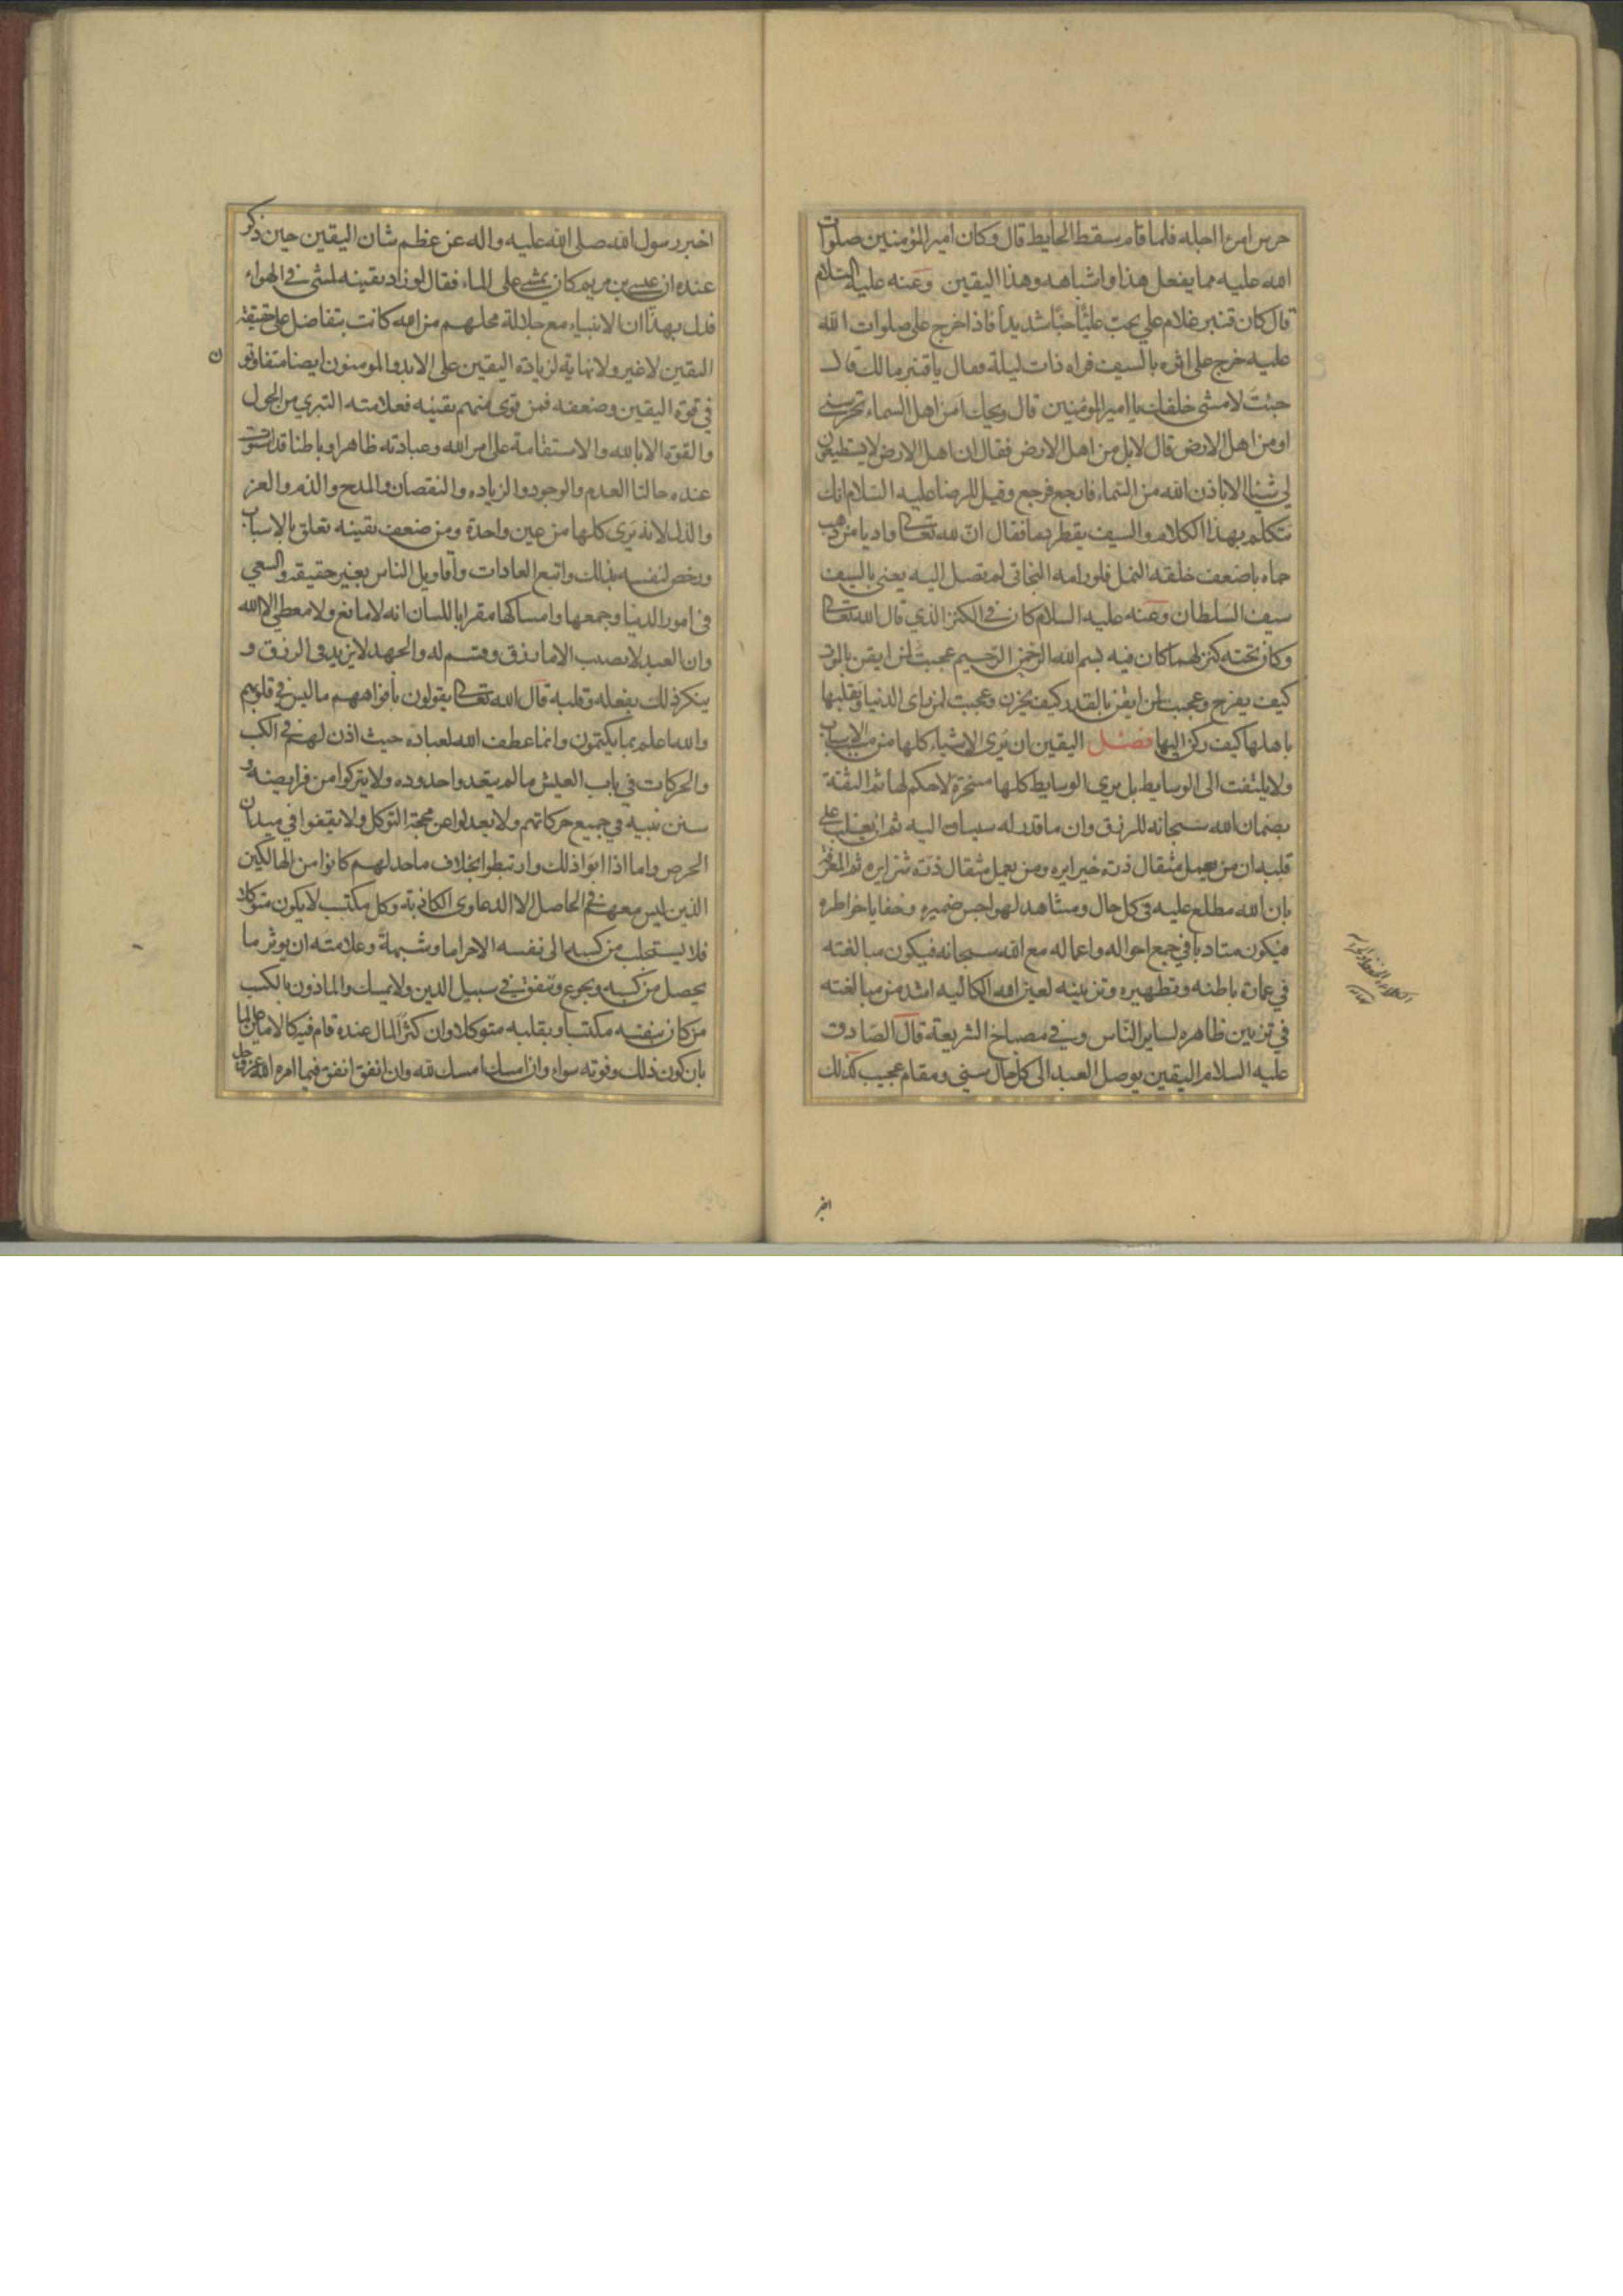 حرس امرءا اجله فلما قام سقط الحايط قال وكان امير المؤمنين صلوات
الله عليه مما يفعل هذا واشباهه وهذا اليقين وعنه عليه السلام
قال كان قنبر غلام علي يحب عليّا حبّا شديداً فاذا خرج على صلوات الله
عليه خرج على اثره بالسيف فراه ذات ليلة فقال يا قنبر مالك قال
جئت لامشى خلفك يا امير المؤمنين قال ويحك امن اهل السماء تحرسنى
او من اهل الارض قال لا بل من اهل الارض فقال ان اهل الارض لا يستطيعون
لى شيئا الا باذن الله من السّماء فارجع فرجع وقيل للرضا عليه السّلام انك
تتكلم بهذا الكلام والسيف يقطر دما فقال انّ لله تعالى واديا من ذهب
حماه باضعف خلقه النمل فلو رامه البخاتى لم تصل اليه يعنى بالسيف
سيف السّلطان وعنه عليه السلام كان فى الكنز الذي قال الله تعالى
وكان تحته كنز لهما كان فيه بسم الله الرّحمن الرّحيم عجبت لمن ايقن بالموت
كيف يفرح وعجبت لمن ايقن بالقدر كيف يحزن وعجبت لمن راى الدنيا وتقلبها
باهلها كيف ركن اليها فصل اليقين ان يرى الاشياء كلها من مسبب الاسباب
ولا يلتفت الى الوسايط بل يرى الوسايط كلها مسخرة لا حكم لها ثم الثقة
بضمان الله سبحانه للرزق وان ما قدر له سيساق اليه ثم ان يغلب على
قلبه ان من يعمل مثقال ذرة خيرا يره ومن يعمل مثقال ذرّة شرّا يره ثم المعرفة
بان الله مطلع عليه فى كل حال ومشاهد لهواجس ضميره وخفايا خواطره
فيكون متادبا في جميع احواله واعماله مع الله سبحانه فيكون مبالغته
في عمارة باطنه وتطهيره وتزيينه لعين الله الكالية اشد من مبالغته
في تزيين ظاهره لساير النّاس وفى مصباح الشريعة قال الصّادق
عليه السلام اليقين يوصل العبد الى كل حال سنى ومقام عجيب كذلك
اخبر
اخبر رسول الله صلى الله عليه واله عن عظم شان اليقين حين ذكر
عنده ان عيسى بن مريم كان يمشى على الماء فقال لو زاد يقينه لمشى فى الهواء
فدل بهذا ان الانبياء مع جلالة محلهم من الله كانت يتفاضل على حقيقة
اليقين لا غير ولا نهاية لزيادة اليقين على الابد والمومنون ايضا متفاوتو
ن
في قوة اليقين وضعفه فمن قوى منهم يقينه فعلامته التبرى من الحول
والقوة الا بالله والاستقامة على امر الله وعبادته ظاهرا وباطنا قد استوت
عنده حالتا العدم والوجود والزيادة والنقصان والمدح والذم والعز
والذل لانه يرى كلها من عين واحدة ومن ضعف يقينه تعلق بالاسباب
ورخص لنفسه بذلك واتبع العادات واقاويل الناس بغير حقيقة والسعي
فى امور الدنيا وجمعها وامساكها مقرا باللسان انه لا مانع ولا معطى الا الله
وان العبد لا يصيب الا ما رزق وقسم له والجهد لا يزيد فى الرزق و
ينكر ذلك بفعله وقلبه قال الله تعالى يقولون بافواههم ما ليس في قلوبهم
والله اعلم بما يكتمون وانما عطف الله لعباده حيث اذن لهم فى الكسب
والحركات في باب العيش ما لم يتعدوا حدوده ولا يتركوا من فرايضه و
سنن نبيه في جميع حركاتهم ولا يعدلوا عن محجة التوكل ولا يقفوا في ميدان
الحرص واما اذا ابوا ذلك وارتبطوا بخلاف ما حد لهم كانوا من الهالكين
الذين ليس معهم فى الحاصل الا الدعاوى الكاذبة وكل مكتسب لا يكون متوكلا
فلا يستجلب من كسبه الى نفسه الا حراما وشبهة وعلامته ان يوثر ما
يحصل من كسبه ويجوع وينفق فى سبيل الدين ولا يمسك والماذون بالكسب
من كان بنفسه مكتسبا وبقلبه متوكلا وان كثر المال عنده قام فيه كالامين عالما
بان كون ذلك وفوته سواء وان امسك امسك لله وان انفق انفق فيما امره الله عز وجل